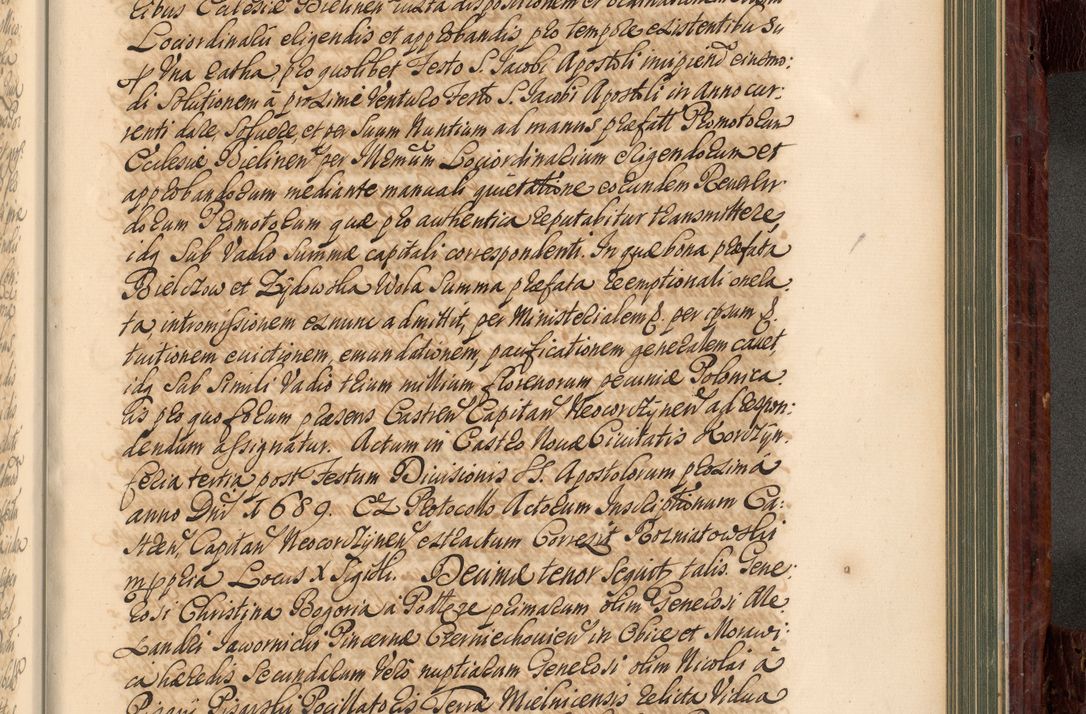 tibus Ecclesiæ Bielinen iuxta dispositionem et ordinationem
Lociordinalij eligendis et approbandis pro tempore existentibus Su
Una Ratha pro quolibet Festo S. Jacobi Apostoli incipiend eiusmo:
di Solutionem à proxime Venturo Festo S. Jacobi Apostoli in anno cur:
renti dare Solvere, et per Suum Nuntium ad manus præfatt Promotorum
Ecclesiæ Bielinen per Illmum Lociordinarium eligendorum et
approbandorum mediante manuali quietatione eorundem Reverem
dorum Promotorum quæ pro authentica reputabitur transmittere
idq Sub Vadio Summæ capitali correspondenti. In quæ bona præfata
Bielczow et Zydowska Wola Summa præfata reemptionali onera:
ta intromissionem exnunc admittit, per Ministerialem &. per ipsum &.
tuitionem evictionem, emundationem, pacificationem generalem cavet,
idq Sub Simili Vadio trium millium florenorum pecuniæ Polonica:
lis pro quo forum præsens Castren Capitan Neocorczynen ad respon:
dendum assignatur. Actum in Castro Novæ Civitatis Korczyn.
feria tertia post Festum Divisionis SS. Apostolorum proxima
anno Dni 1689. Ex Protocollo Actorum Inscriptionum Ca:
stren, Capitan Neocorczynen extractum Correxit Rozniatowski
mppria Locus X Sigilli. Decimæ tenor Sequit, talis. Gene:
rosi Christina Bogoria à Podleze primarum olim Generosi Ale
xandri Jawornicki Pincernæ Czerniechovien in Obice et Morawi:
ca hæredis Secundarum Vero nuptiarum Generosi olim Nicolai à
Pisary Pisarski Pocillatoris Terræ Mielnicensis relicta Vidua